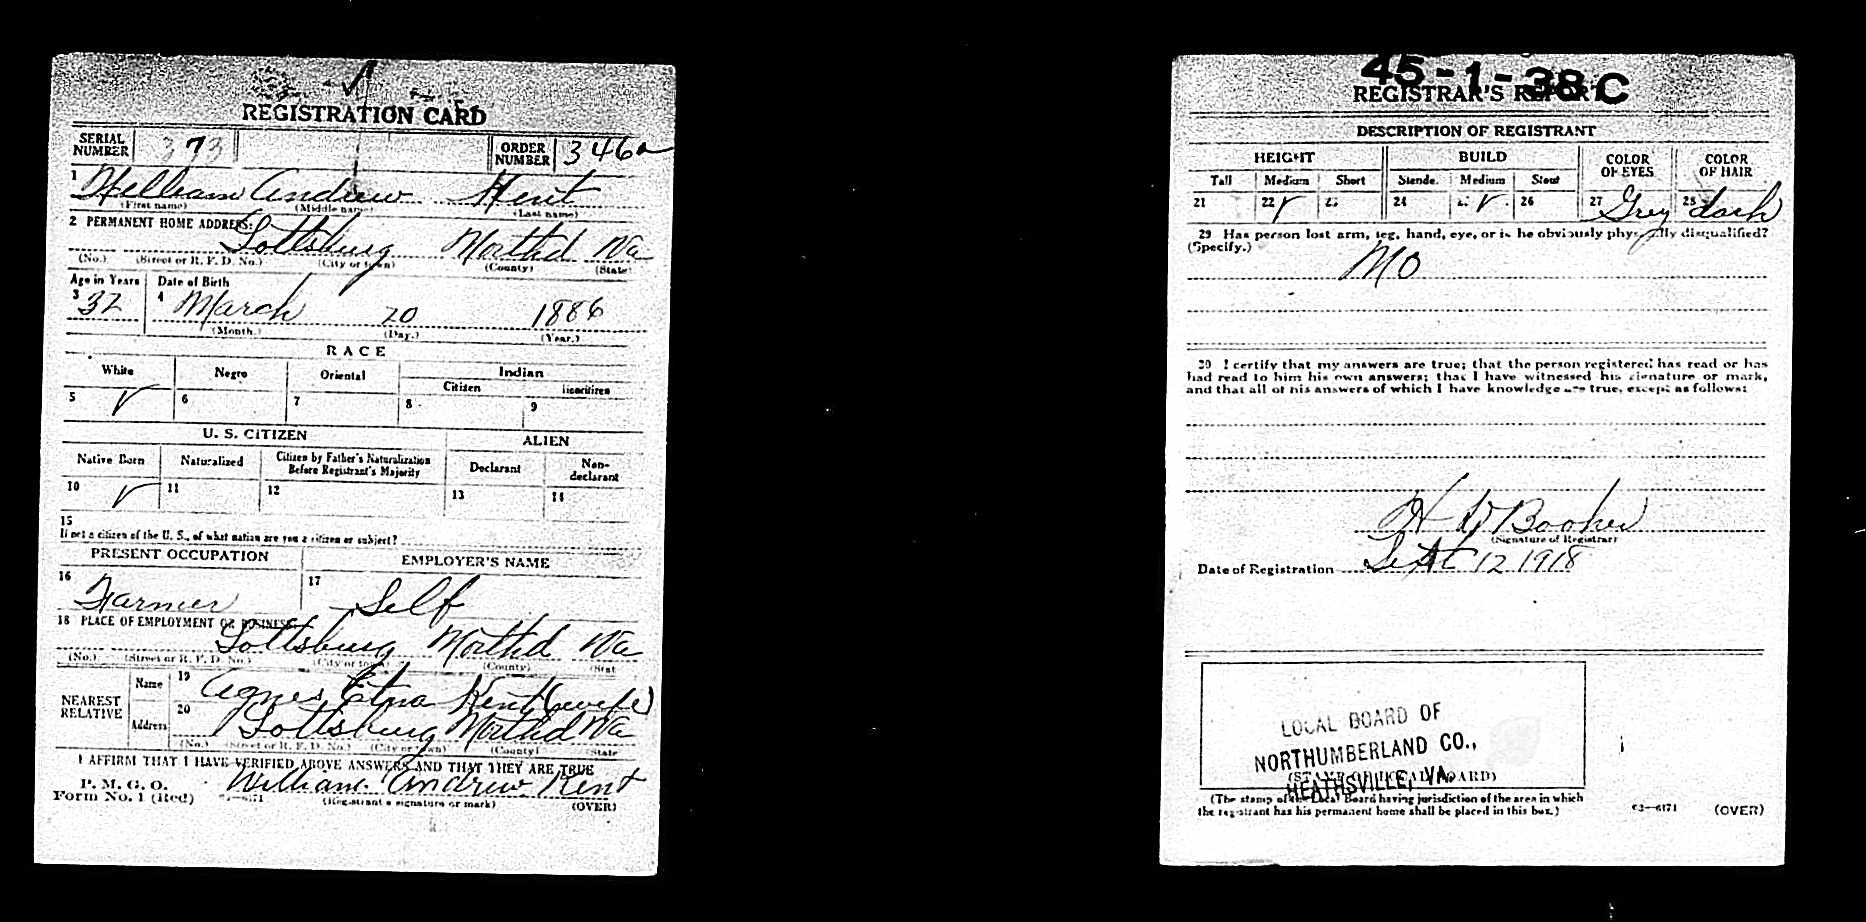 REGISTRATION CARD
SERIAL NUMBER 373 ORDER NUMBER 346
1 William Andrew Kent
(First name) (Middle name) (Last name)
2 PERMANENT HOME ADDRESS:
Lottsburg Northd Va
(No.) (Street or R. F. D. No.) (City or town) (County) (State)
Age in Years Date of Birth
3 32 4 March 20 1886
(Month.) (Day.) (Year.)
RACE
White Negro Oriental Indian
Citizen Noncitizen
5 6 7 8 9
U. S. CITIZEN ALIEN
Native Born Naturalized Citizen by Father's Naturalization Before Registrant's Majority Declarant Non-declarant
10 11 12 13 14
15
If not a citizen of the U. S., of what nation are you a citizen or subject?
PRESENT OCCUPATION EMPLOYER'S NAME
16 Farmer 17 Self
18 PLACE OF EMPLOYMENT OR BUSINESS:
Lottsburg Northd Va
(No.) (Street or R. F. D. No.) (City or town) (County) (State)
NEAREST RELATIVE
Name 19 Agnes Etna Kent (wife)
Address 20 Lottsburg Northd Va
(No.) (Street or R. F. D. No.) (City or town) (County) (State)
I AFFIRM THAT I HAVE VERIFIED ABOVE ANSWERS AND THAT THEY ARE TRUE
P. M. G. O.
Form No. 1 (Red) William Andrew Kent
(Registrant's signature or mark) (OVER)
45-1-38 C
REGISTRAR'S REPORT
DESCRIPTION OF REGISTRANT
HEIGHT BUILD COLOR OF EYES COLOR OF HAIR
Tall Medium Short Slender Medium Stout
21 22 23 24 25 26 27 Grey 28 dark
29 Has person lost arm, leg, hand, eye, or is he obviously physically disqualified?
(Specify.)
No
30 I certify that my answers are true; that the person registered has read or has
had read to him his own answers; that I have witnessed his signature or mark,
and that all of his answers of which I have knowledge are true, except as follows:
Booker
(Signature of Registrar)
Date of Registration Sept 12 1918
LOCAL BOARD OF
NORTHUMBERLAND CO.,
HEATHSVILLE, VA.
(STAMP OF LOCAL BOARD)
(The stamp of the Local Board having jurisdiction of the area in which
the registrant has his permanent home shall be placed in this box.)
03—6171 (OVER)